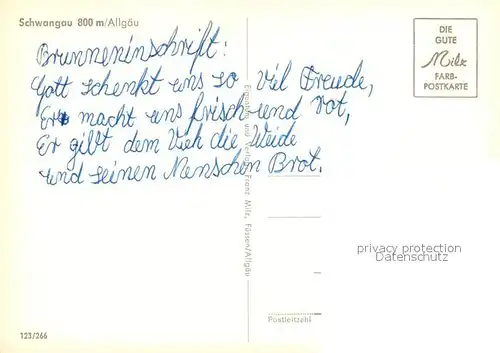 Schwangau 800 m/Allgäu
DIE
GUTE
Milz
FARB-
POSTKARTE
Brunneninschrift:
Gott schenkt uns so viel Freude,
Er macht uns frisch und rot,
Er gibt dem Vieh die Weide
und seinen Menschen Brot.
Fotografie und Verlag Franz Milz, Füssen/Allgäu
privacy protection
Datenschutz
Postleitzahl
123/266